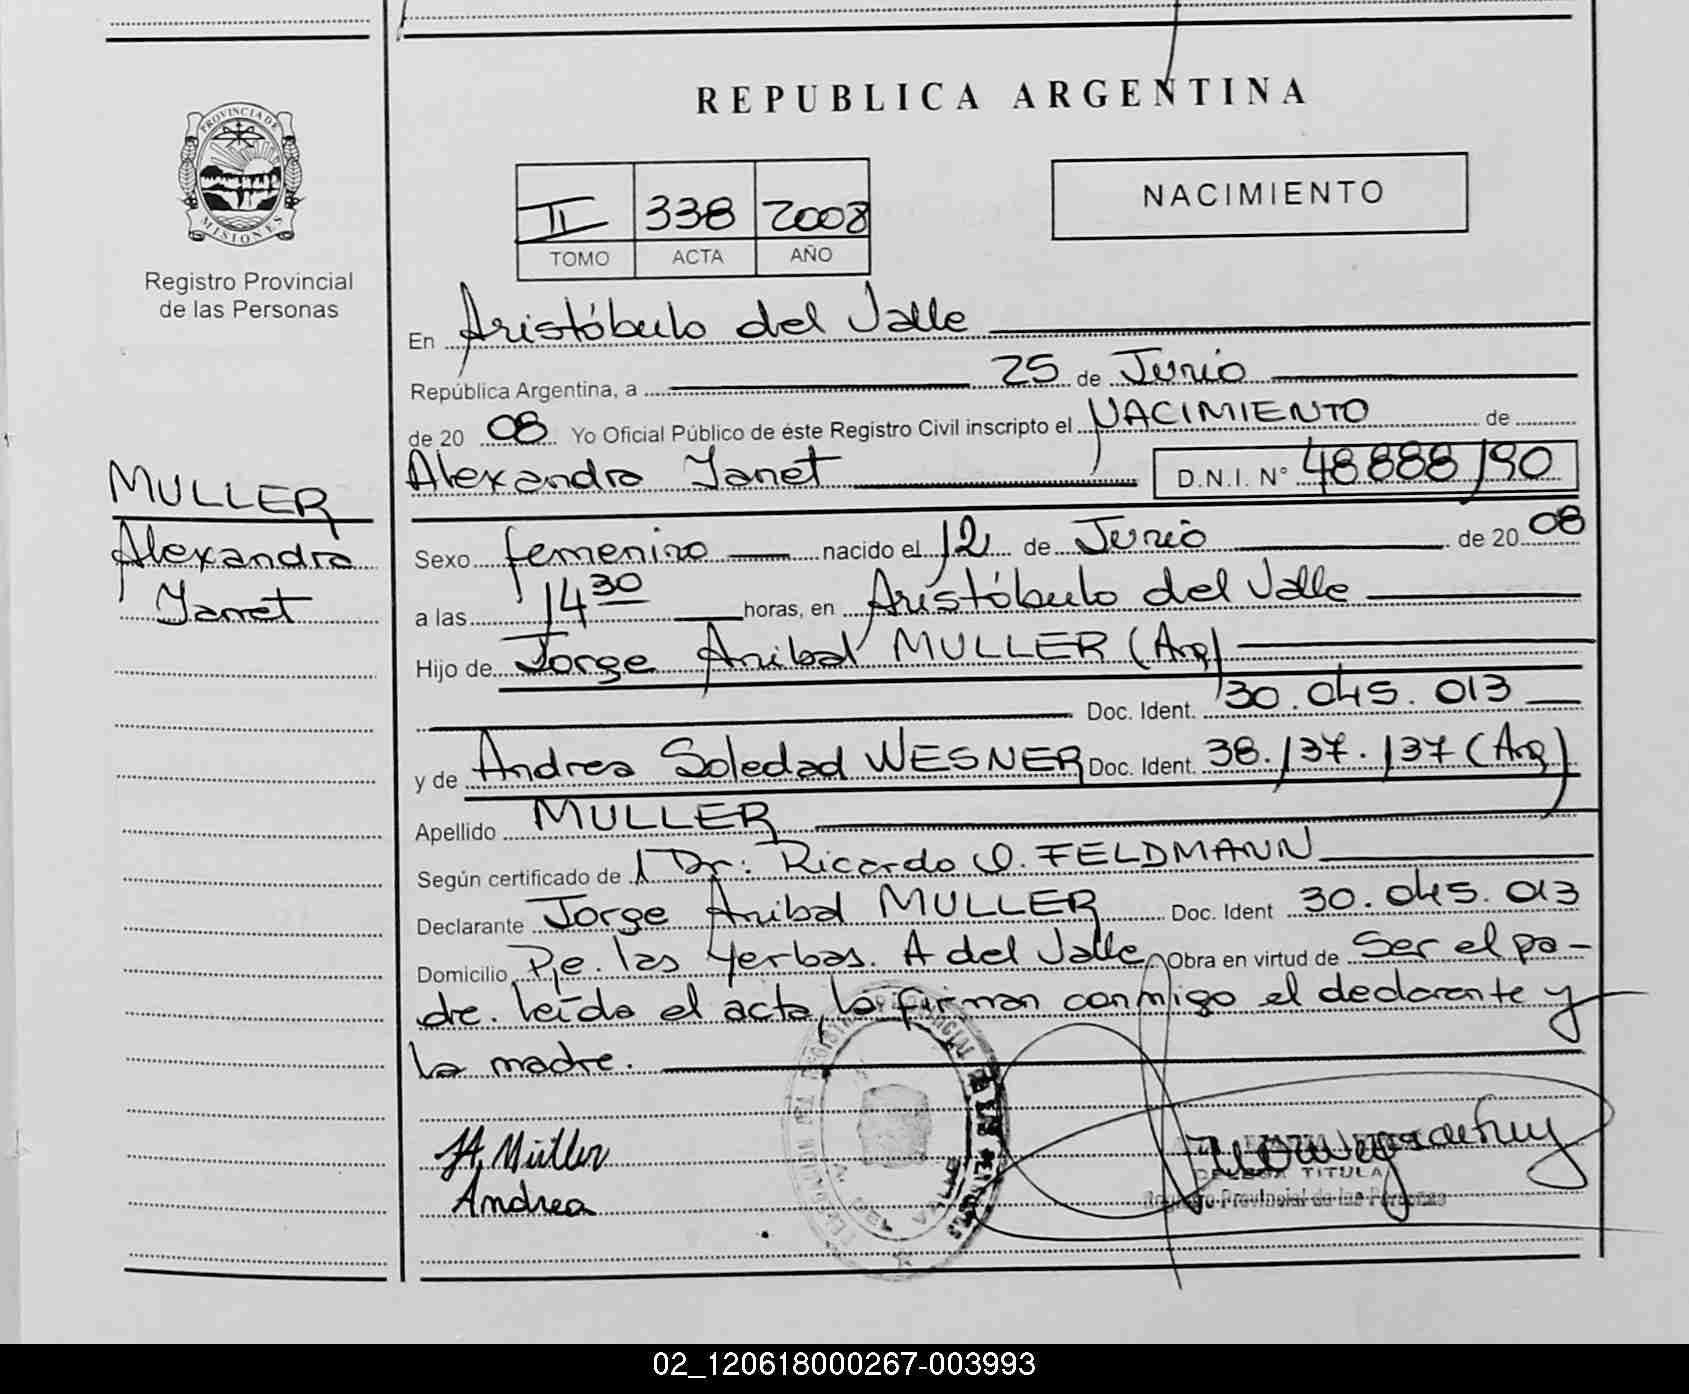 REPUBLICA ARGENTINA
PROVINCIA DE MISIONES
Registro Provincial
de las Personas
NACIMIENTO
II 338 2008
TOMO ACTA AÑO
En Aristóbulo del Valle
República Argentina, a 25 de Junio
de 20 08 Yo Oficial Público de éste Registro Civil inscripto el NACIMIENTO de
Alexandra Yanet D.N.I. N° 48888190
MULLER
Alexandra
Yanet
Sexo femenino nacido el 12 de Junio de 20 08
a las 14 30 horas, en Aristóbulo del Valle
Hijo de Jorge Anibal MULLER (Arg)
Doc. Ident. 30.045.013
y de Andrea Soledad WESNER Doc. Ident. 38.137.137 (Arg)
Apellido MULLER
Según certificado de Dr: Ricardo O. FELDMANN
Declarante Jorge Anibal MULLER Doc. Ident 30.045.013
Domicilio Pje. las Yerbas. A del Valle Obra en virtud de Ser el pa-
dre. leída el acta, la firman conmigo el declarante y
la madre.
JA Müller
Andrea
TITULAR
Registro Provincial de las Personas
02_120618000267-003993